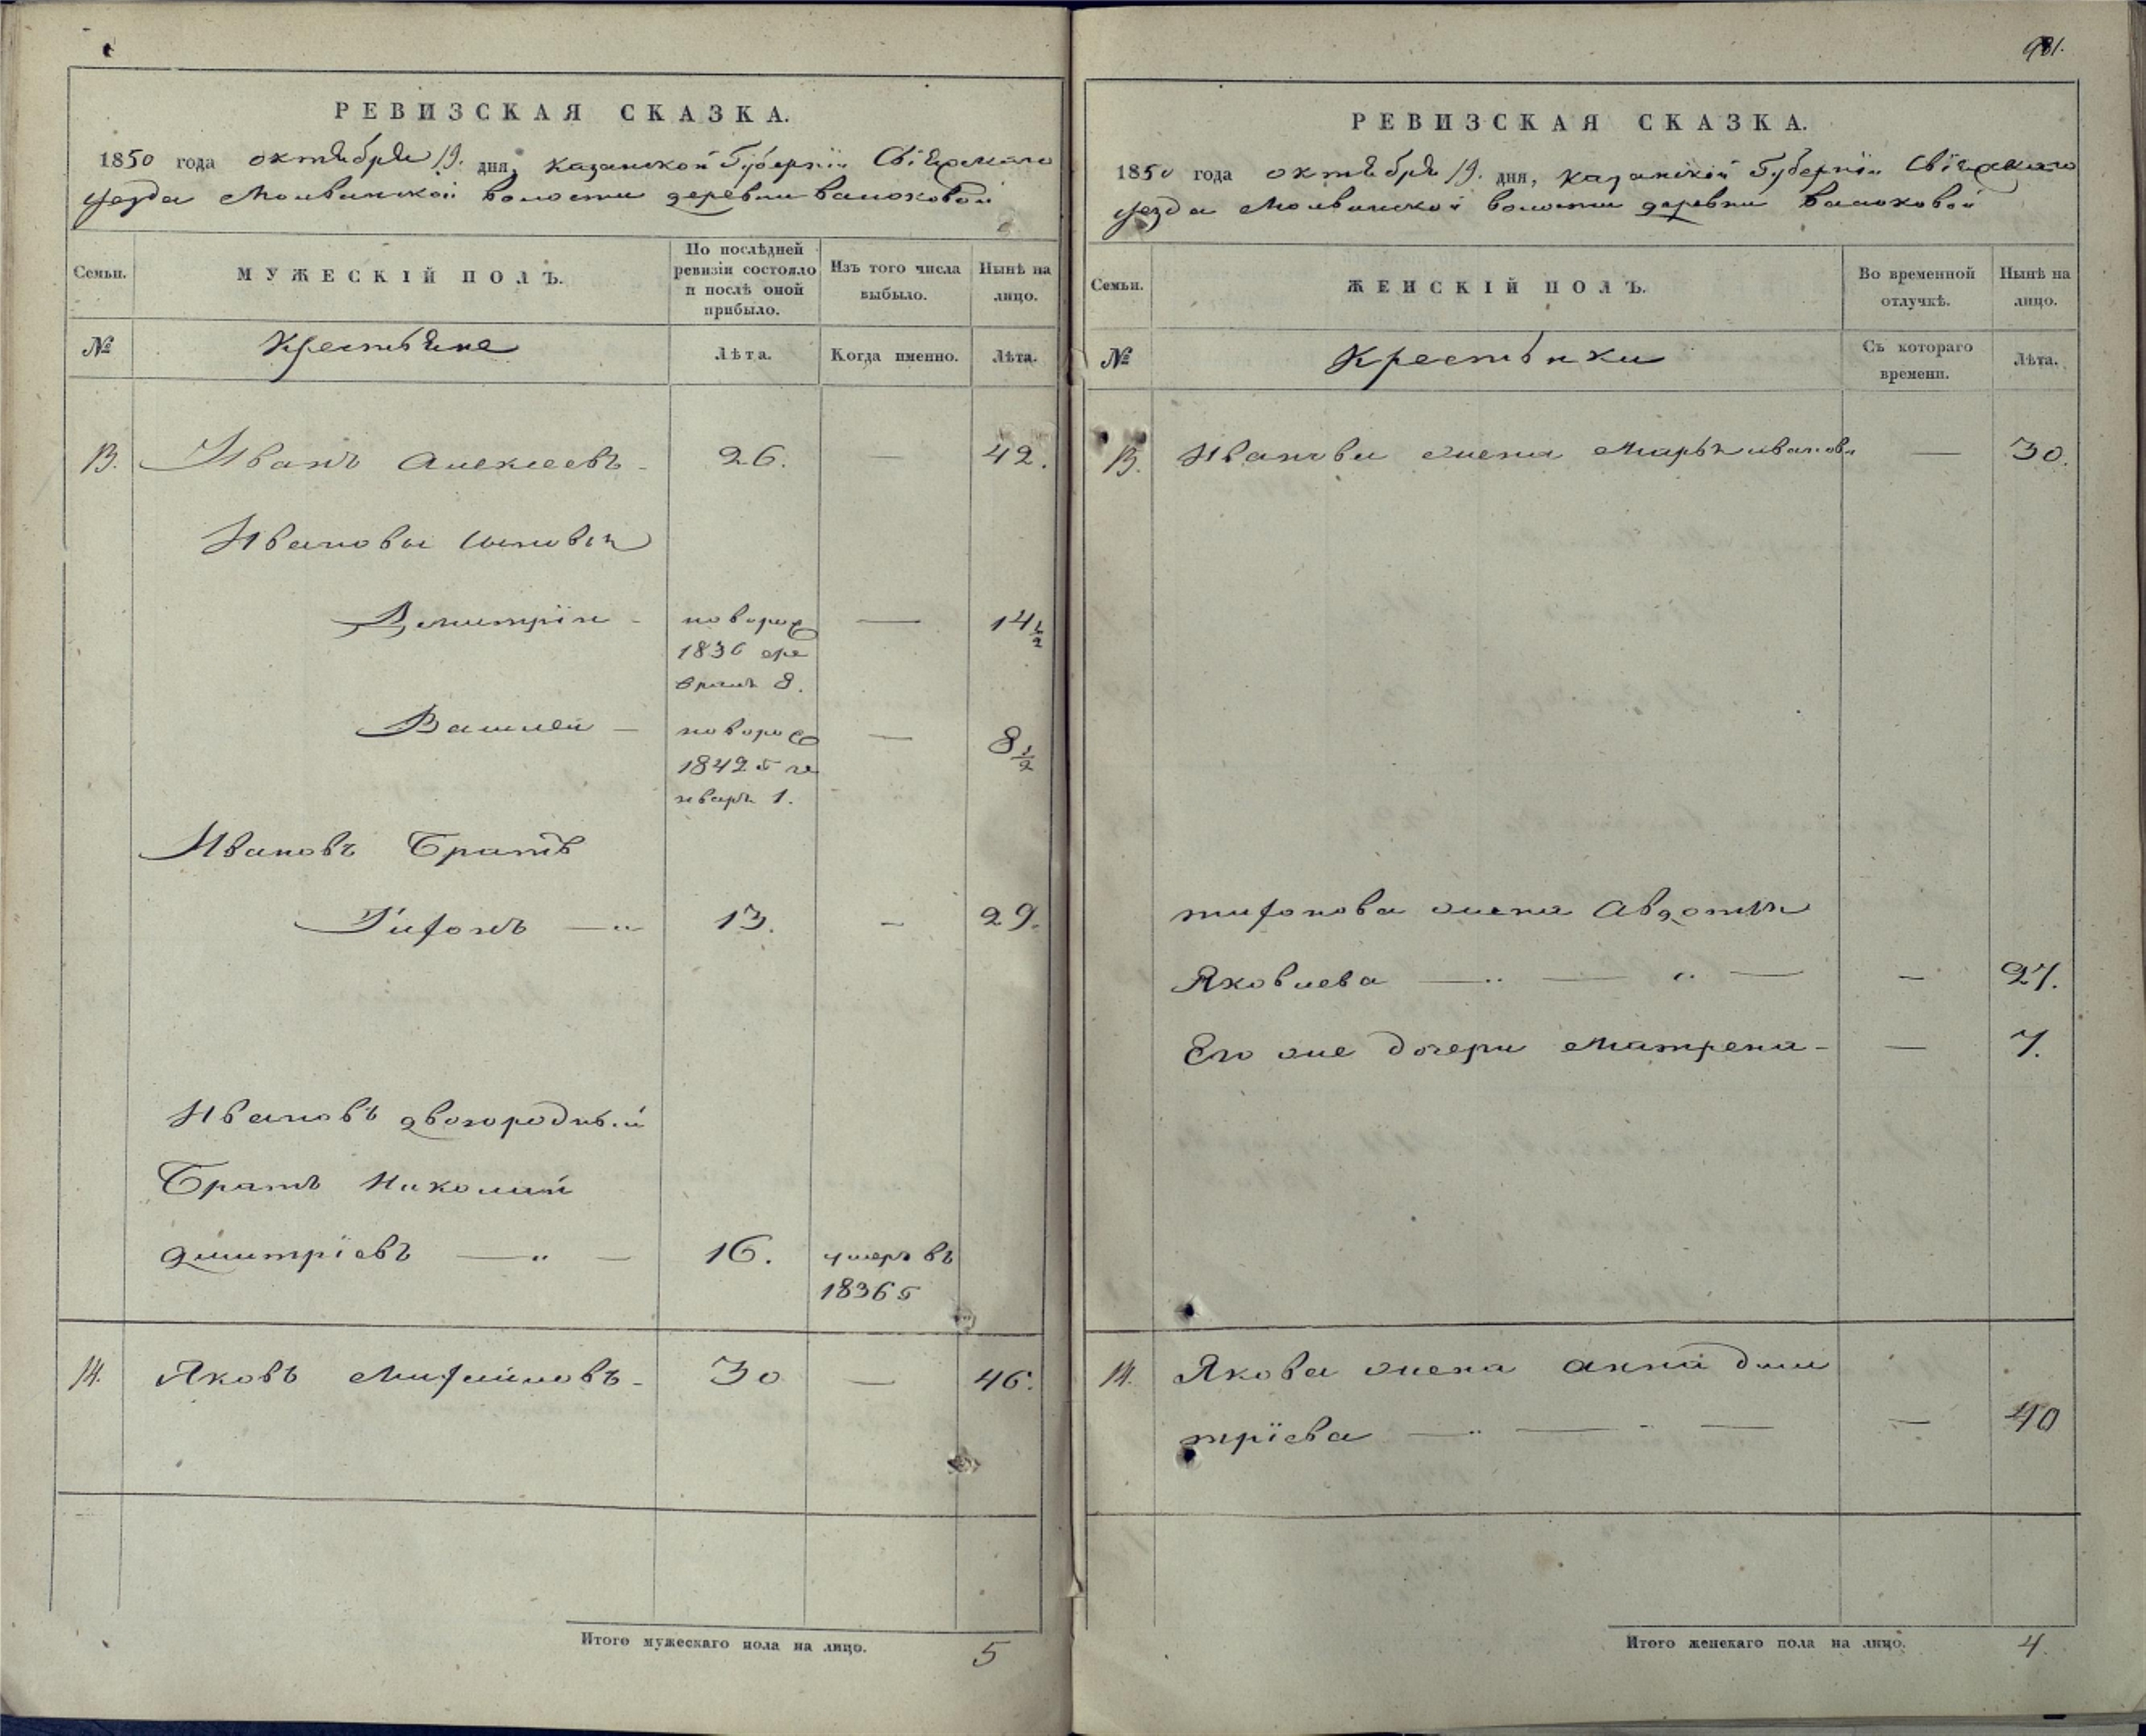 981.
РЕВИЗСКАЯ СКАЗКА.
1850 года октября 19. дня, Казанской Губернiи Свiяжскаго
уезда Молвинской волости деревни
Семьи. МУЖЕСКІЙ ПОЛЪ. По послѣдней ревизіи состояло и послѣ оной прибыло. Изъ того числа выбыло. Нынѣ на лицо.
№ Крестьяне Лѣта. Когда именно. Лѣта.
13. Иванъ Алексеевъ 26. — 42.
Ивановы сыновья
Демитрiи новорож — 14 1/2
1836 фе
враля 8.
Василей новорож — 8 1/2
1842 г ге
нваря 1.
Ивановъ Братъ
Тифонъ 13. — 29.
Ивановъ двоюродный
Братъ Николай
дмитрiевъ 16. умеръ въ
1836 г
14. Яковъ 30 — 46.
Итого мужескаго пола на лицо. 5
РЕВИЗСКАЯ СКАЗКА.
1850 года октября 19. дня, Казанской Губернiи Свiяжскаго
уезда Молвинской волости деревни
Семьи. ЖЕНСКІЙ ПОЛЪ. Во временной отлучкѣ. Нынѣ на лицо.
№ Крестьянки Съ котораго времени. Лѣта.
13. Иванова жена Марья иванова — 30.
тифонова жена Авдотья
Яковлева — 27.
Его же дочери Матрена — 7.
14. Якова жена анна дми
трiева — 40
Итого женскаго пола на лицо. 4.